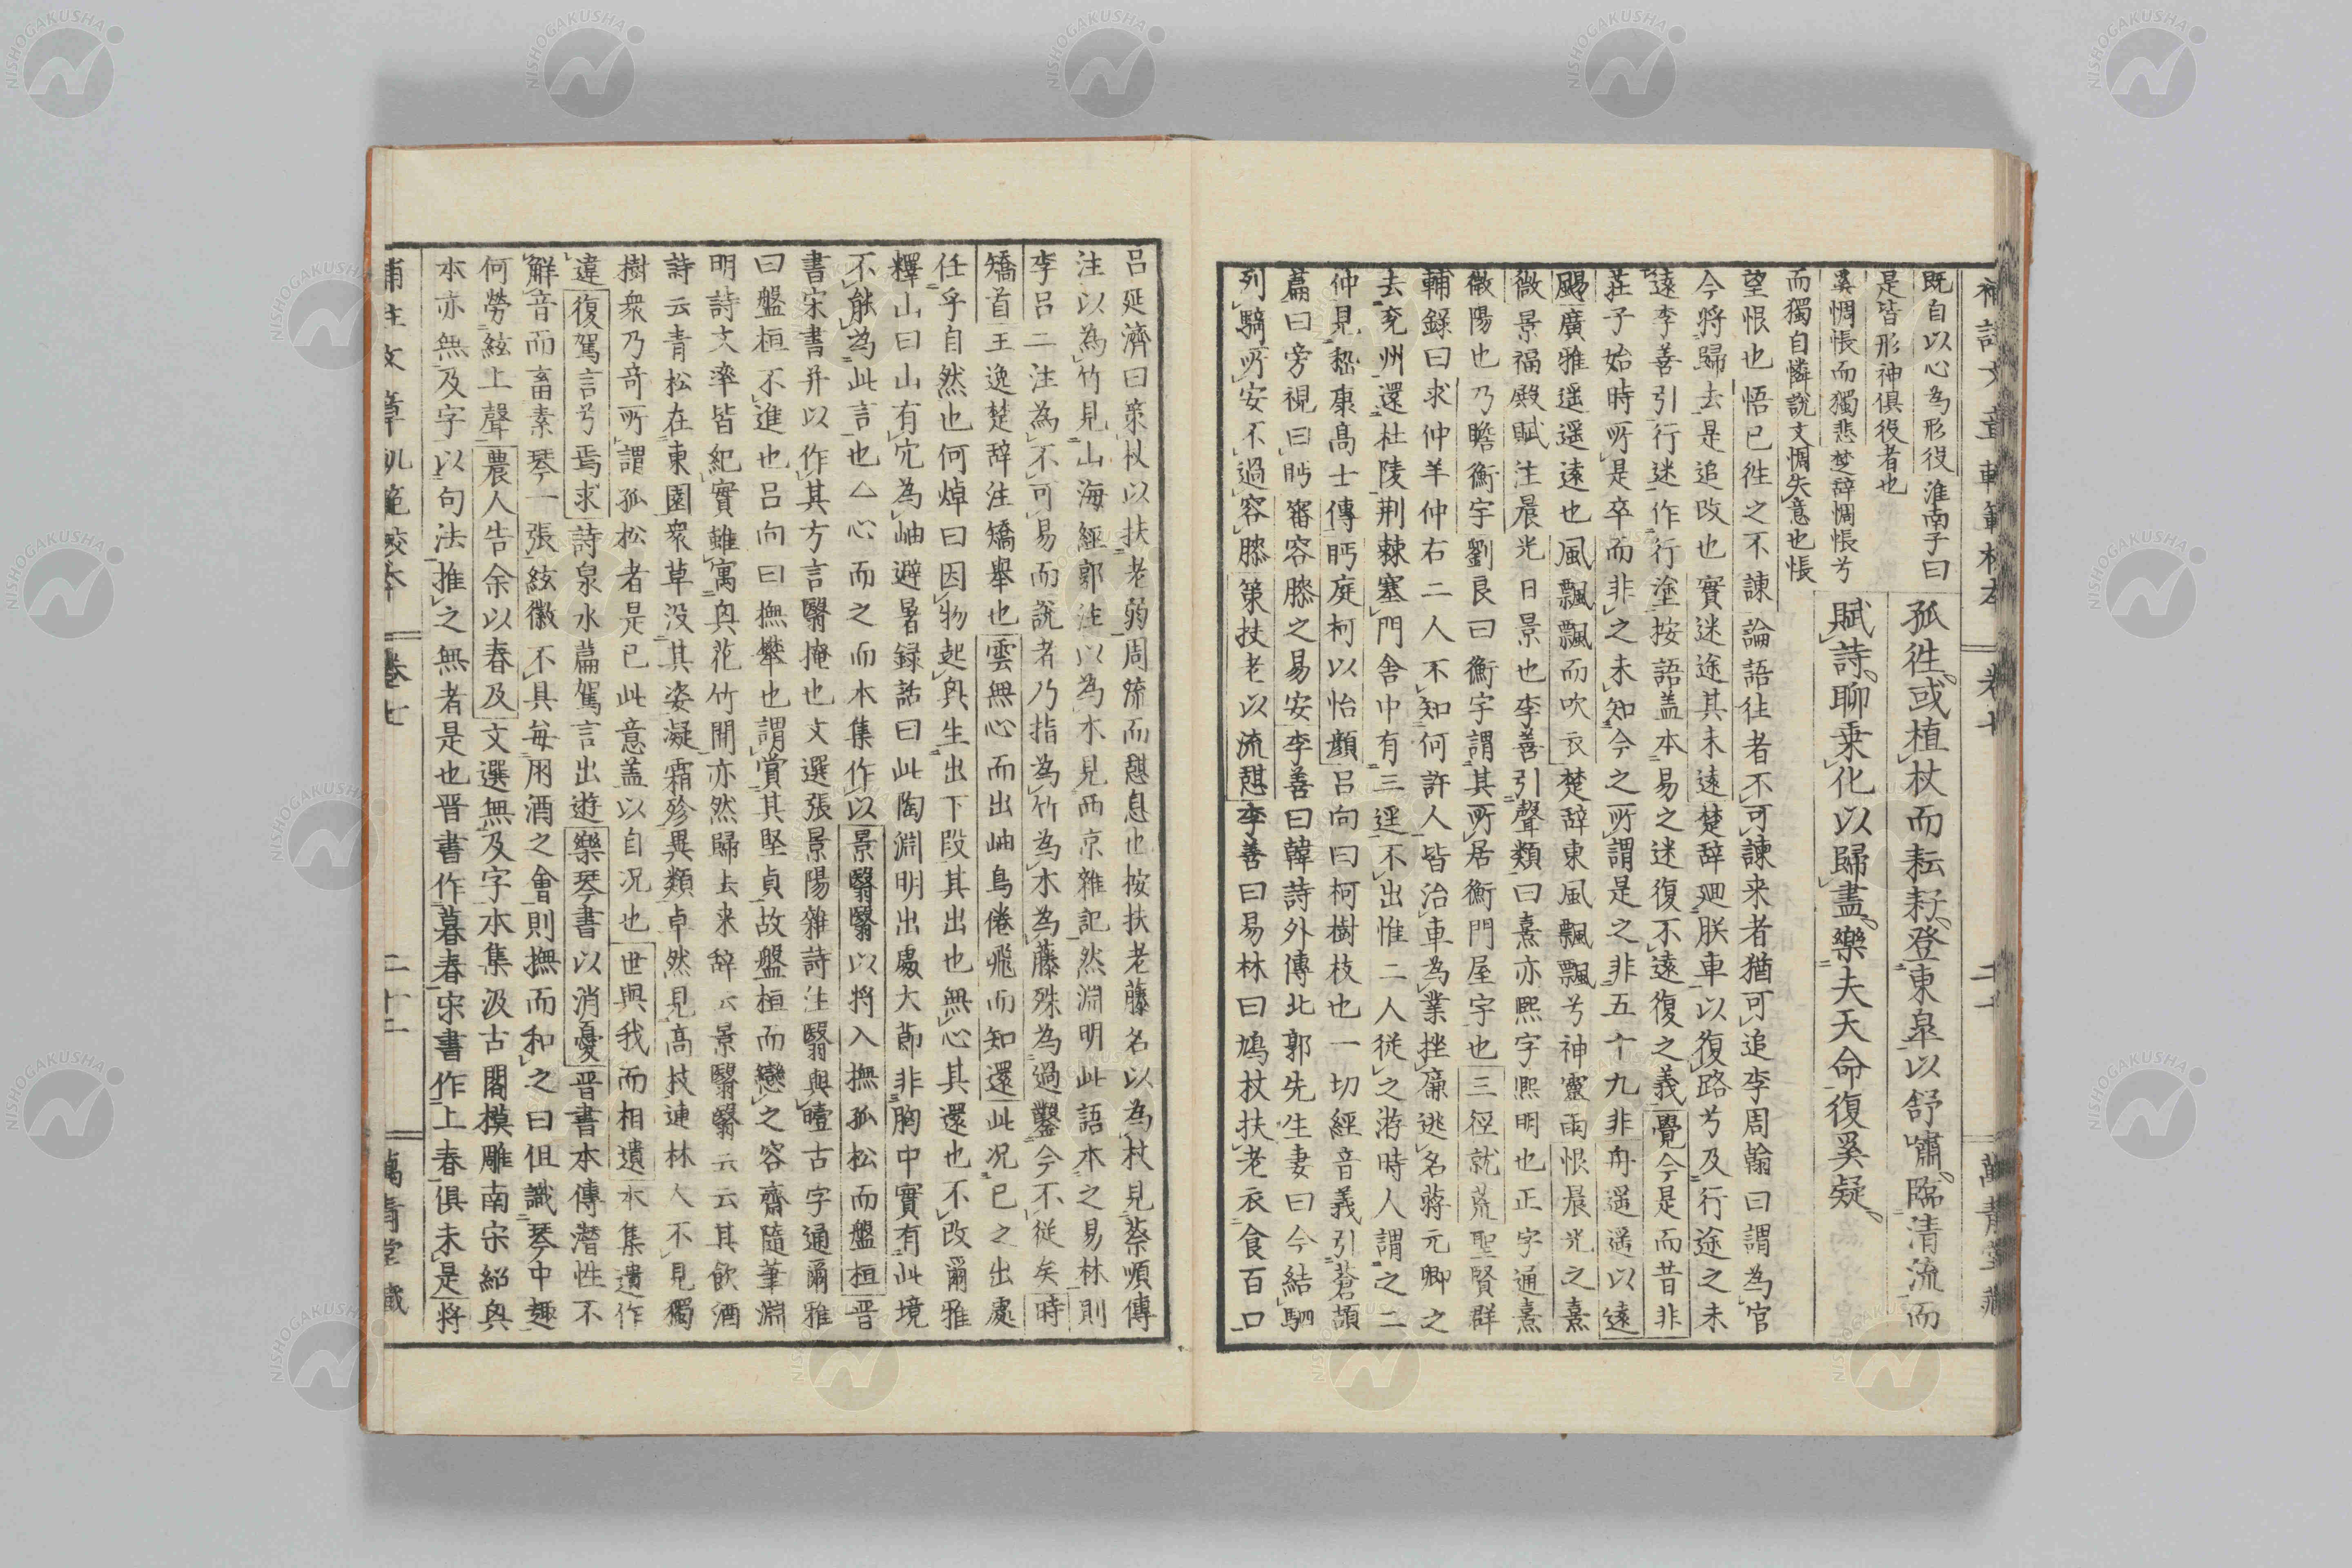 補註文章軌範校本 卷七 二十一 萬青堂藏
孤徃或植杖而耘耔登東皐以舒嘯臨清流而
賦詩聊乗化以歸盡樂夫天命復奚疑
既自以心為形役 淮南子曰
是皆形神俱役者也
奚惆悵而獨悲 楚辭惆悵兮
而獨自憐說文惆失意也悵
望恨也 悟已徃之不諫 論語往者不可諫来者猶可追李周翰曰謂為官
今將歸去是追改也 實迷途其未遠 楚辭廻朕車以復路兮及行途之未
遠李善引行迷作行塗按語盖本易之迷復不遠復之義 覺今是而昔非
莊子始時所是卒而非之未知今之所謂是之非五十九非 舟遥遥以遠
颺 廣雅遥遥遠也 風飄飄而吹衣 楚辭東風飄飄兮神靈雨 恨晨光之熹
微 景福殿賦注晨光日景也李善引聲類曰熹亦熙字熙明也正字通熹
微陽也 乃瞻衡宇 劉良曰衡宇謂其所居衡門屋宇也 三徑就荒 聖賢群
輔錄曰求仲羊仲右二人不知何許人皆治車為業挫廉逃名蔣元卿之
去兗州還杜陵荆棘塞門舍中有三逕不出惟二人従之游時人謂之二
仲見嵇康高士傳 眄庭柯以怡顔 呂向曰柯樹枝也一切經音義引蒼頡
篇曰旁視曰眄 審容膝之易安 李善曰韓詩外傳北郭先生妻曰今結駟
列騎所安不過容膝 策扶老以流憩 李善曰易林曰鳩杖扶老衣食百口
呂延濟曰策杖以扶老弱周流而憩息也按扶老藤名以為杖見蔡順傳
注以為竹見山海經郭注以為木見西京雜記然淵明此語本之易林則
李呂二注為不可易而說者乃指為竹為木為藤殊為過鑿今不従矣 時
矯首 王逸楚辞注矯舉也 雲無心而出岫鳥倦飛而知還 此况已之出處
任乎自然也何焯曰因物起興生出下段其出也無心其還也不改爾雅
釋山曰山有穴為岫避暑録話曰此陶淵明出處大節非胸中實有此境
不能為此言也△心而之而本集作以 景翳翳以將入撫孤松而盤桓 晋
書宋書并以作其方言翳掩也文選張景陽雜詩注翳與曀古字通爾雅
曰盤桓不進也呂向曰撫攀也謂賞其堅貞故盤桓而戀之容齋隨筆淵
明詩文率皆紀實雖寓與花竹間亦然歸去来辞云景翳翳云云其飲酒
詩云青松在東園衆草没其姿凝霜殄異類卓然見高枝連林人不見獨
樹衆乃奇所謂孤松者是已此意盖以自况也 世與我而相遺 本集遺作
違 復駕言兮焉求 詩泉水篇駕言出遊 樂琴書以消憂 晋書本傳潛性不
解音而畜素琴一張絃徽不具毎朋酒之會則撫而和之曰但識琴中趣
何勞絃上聲 農人告余以春及 文選無及字本集汲古閣模雕南宋紹興
本亦無及字以句法推之無者是也晋書作暮春宋書作上春俱未是 將
補註文章軌範校本 卷七 二十二 萬青堂藏